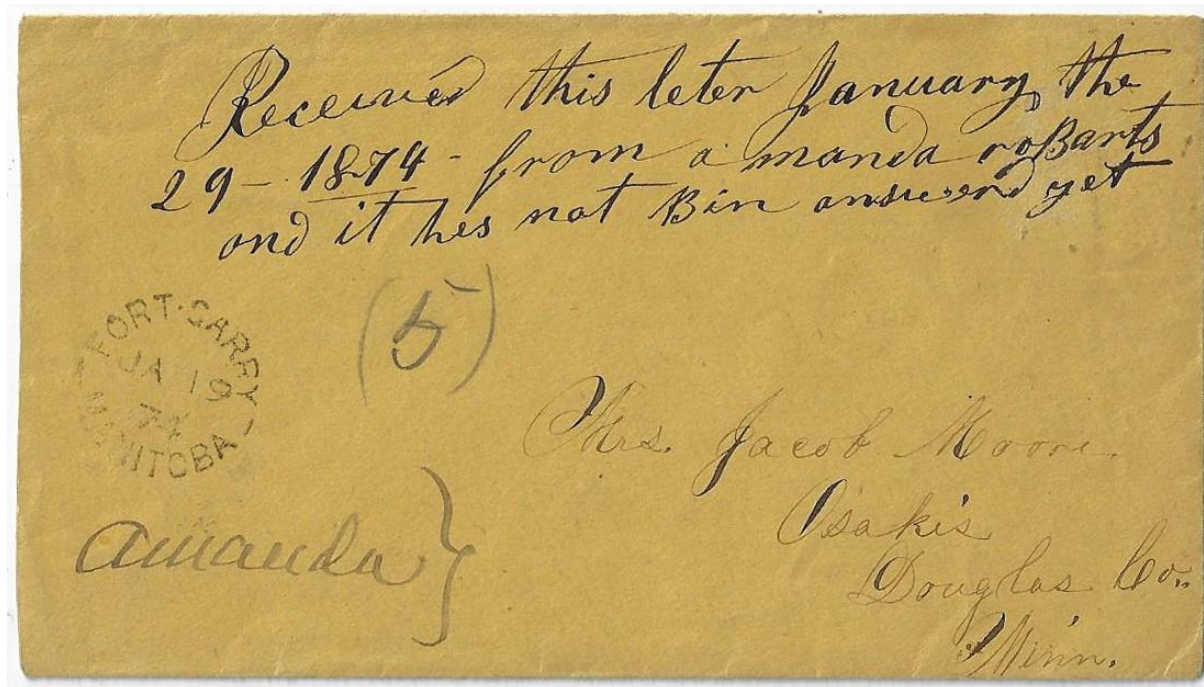 Received this leter January the
29 - 1874 - from a manda roBarts
and it hes not Bin answerd yet
(5)
FORT-GARRY
JA 19
74
MANITOBA
Mrs. Jacob Moore.
Osakis
Douglas Co.
Minn.
Amanda }